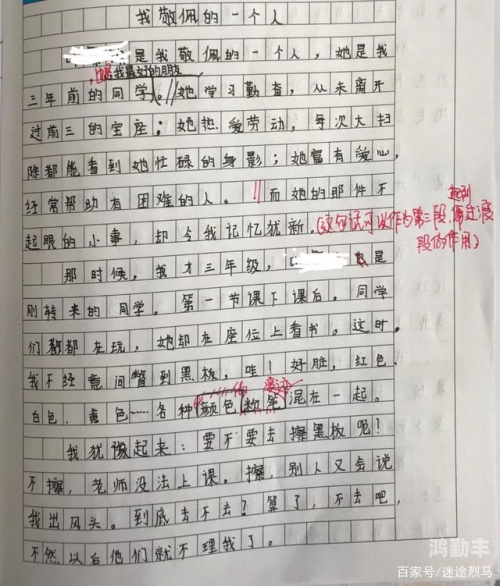 我敬佩的一个人
是我敬佩的一个人，她是我
也是我最好的朋友
三年前的同学。//她学习勤奋，从未离开
过前三的宝座；她热爱劳动，每次大扫
除都能看到她忙碌的身影；她富有爱心，
经常帮助有困难的人。//而她的那件不
起眼的小事，却令我记忆犹新。(这句话可以作为第三段，起到过渡
段的作用)
那时候，我才三年级，也是
刚转来的同学。第一节课下课后。同学
们都在玩，她却在座位上看书。这时。
我不经意间瞥到黑板，哇！好脏，红色、
白色、黄色……各种颜色粉笔混在一起。
我犹豫起来：要不要去擦黑板呢？
不擦，老师没法上课。擦，别人又会说
我出风头。到底去不去？算了，不去吧，
不然以后他们就不理我了。
鸿勤丰
百家号/迷途烈马